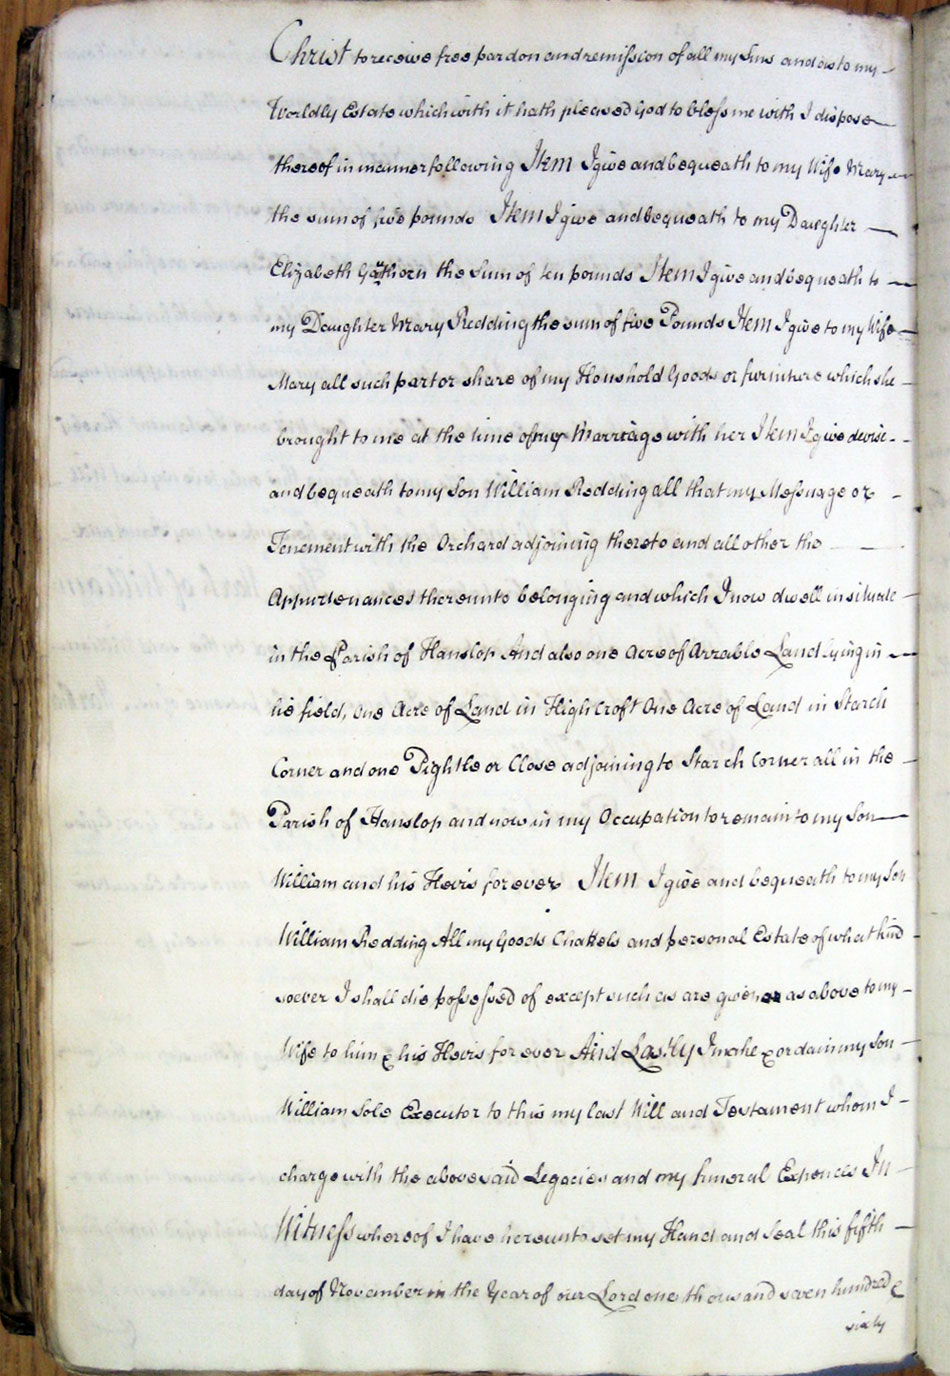 Christ to receive free pardon and remission of all my Sins and as to my
Worldly Estate which with it hath pleased God to bless me with I dispose
thereof in manner following Item I give and bequeath to my Wife Mary
the sum of five pounds Item I give and bequeath to my Daughter
Elizabeth the Sum of ten pounds Item I give and bequeath to
my Daughter Mary Redding the sum of five Pounds Item I give to my Wife
Mary all such part or share of my Houshold Goods or furniture which she
brought to me at the time of my Marriage with her Item I give devise
and bequeath to my Son William Redding all that my Messuage or
Tenement with the Orchard adjoining thereto and all other the
Appurtenances thereunto belonging and which I now dwell in situate
in the Parish of Hanslop And also one Acre of Arrable Land lying in
field, one Acre of Land in High Croft One Acre of Land in Starch
Corner and one Pightle or Close adjoining to Starch Corner all in the
Parish of Hanslop and now in my Occupation to remain to my Son
William and his Heirs for ever Item I give and bequeath to my Son
William Redding All my Goods Chattels and personal Estate of what kind
soever I shall die possessed of except such as are given as above to my
Wife to him & his Heirs for ever And Lastly I make & ordain my Son
William Sole Executor to this my last Will and Testament whom I
charge with the abovesaid Legacies and my funeral Expences In
Witness whereof I have hereunto set my Hand and Seal this fifth
day of November in the Year of our Lord one thousand seven hundred &
sixty